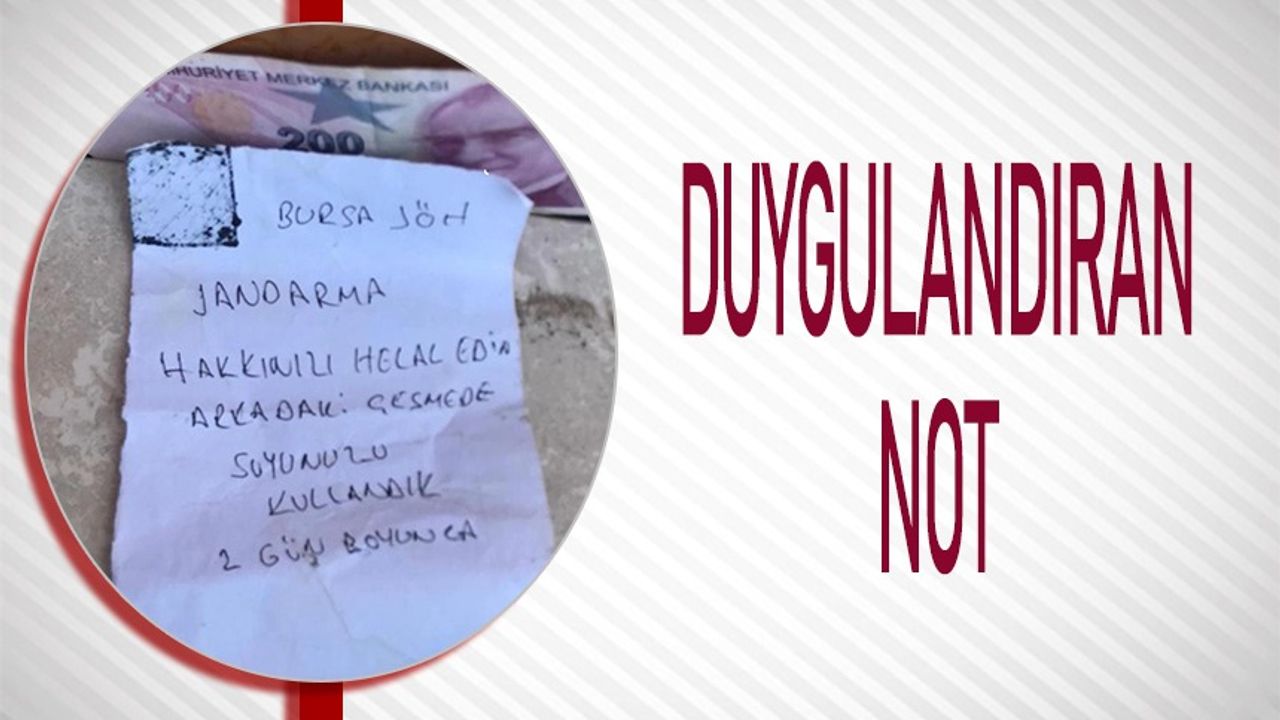 HURİYET MERKEZ BANKASI
200
BURSA JÖH
JANDARMA
HAKKINIZI HELAL EDİN
ARKADAKİ ÇESMEDE
SUYUNUZU
KULLANDIK
2 GÜN BOYUNCA
DUYGULANDIRAN
NOT